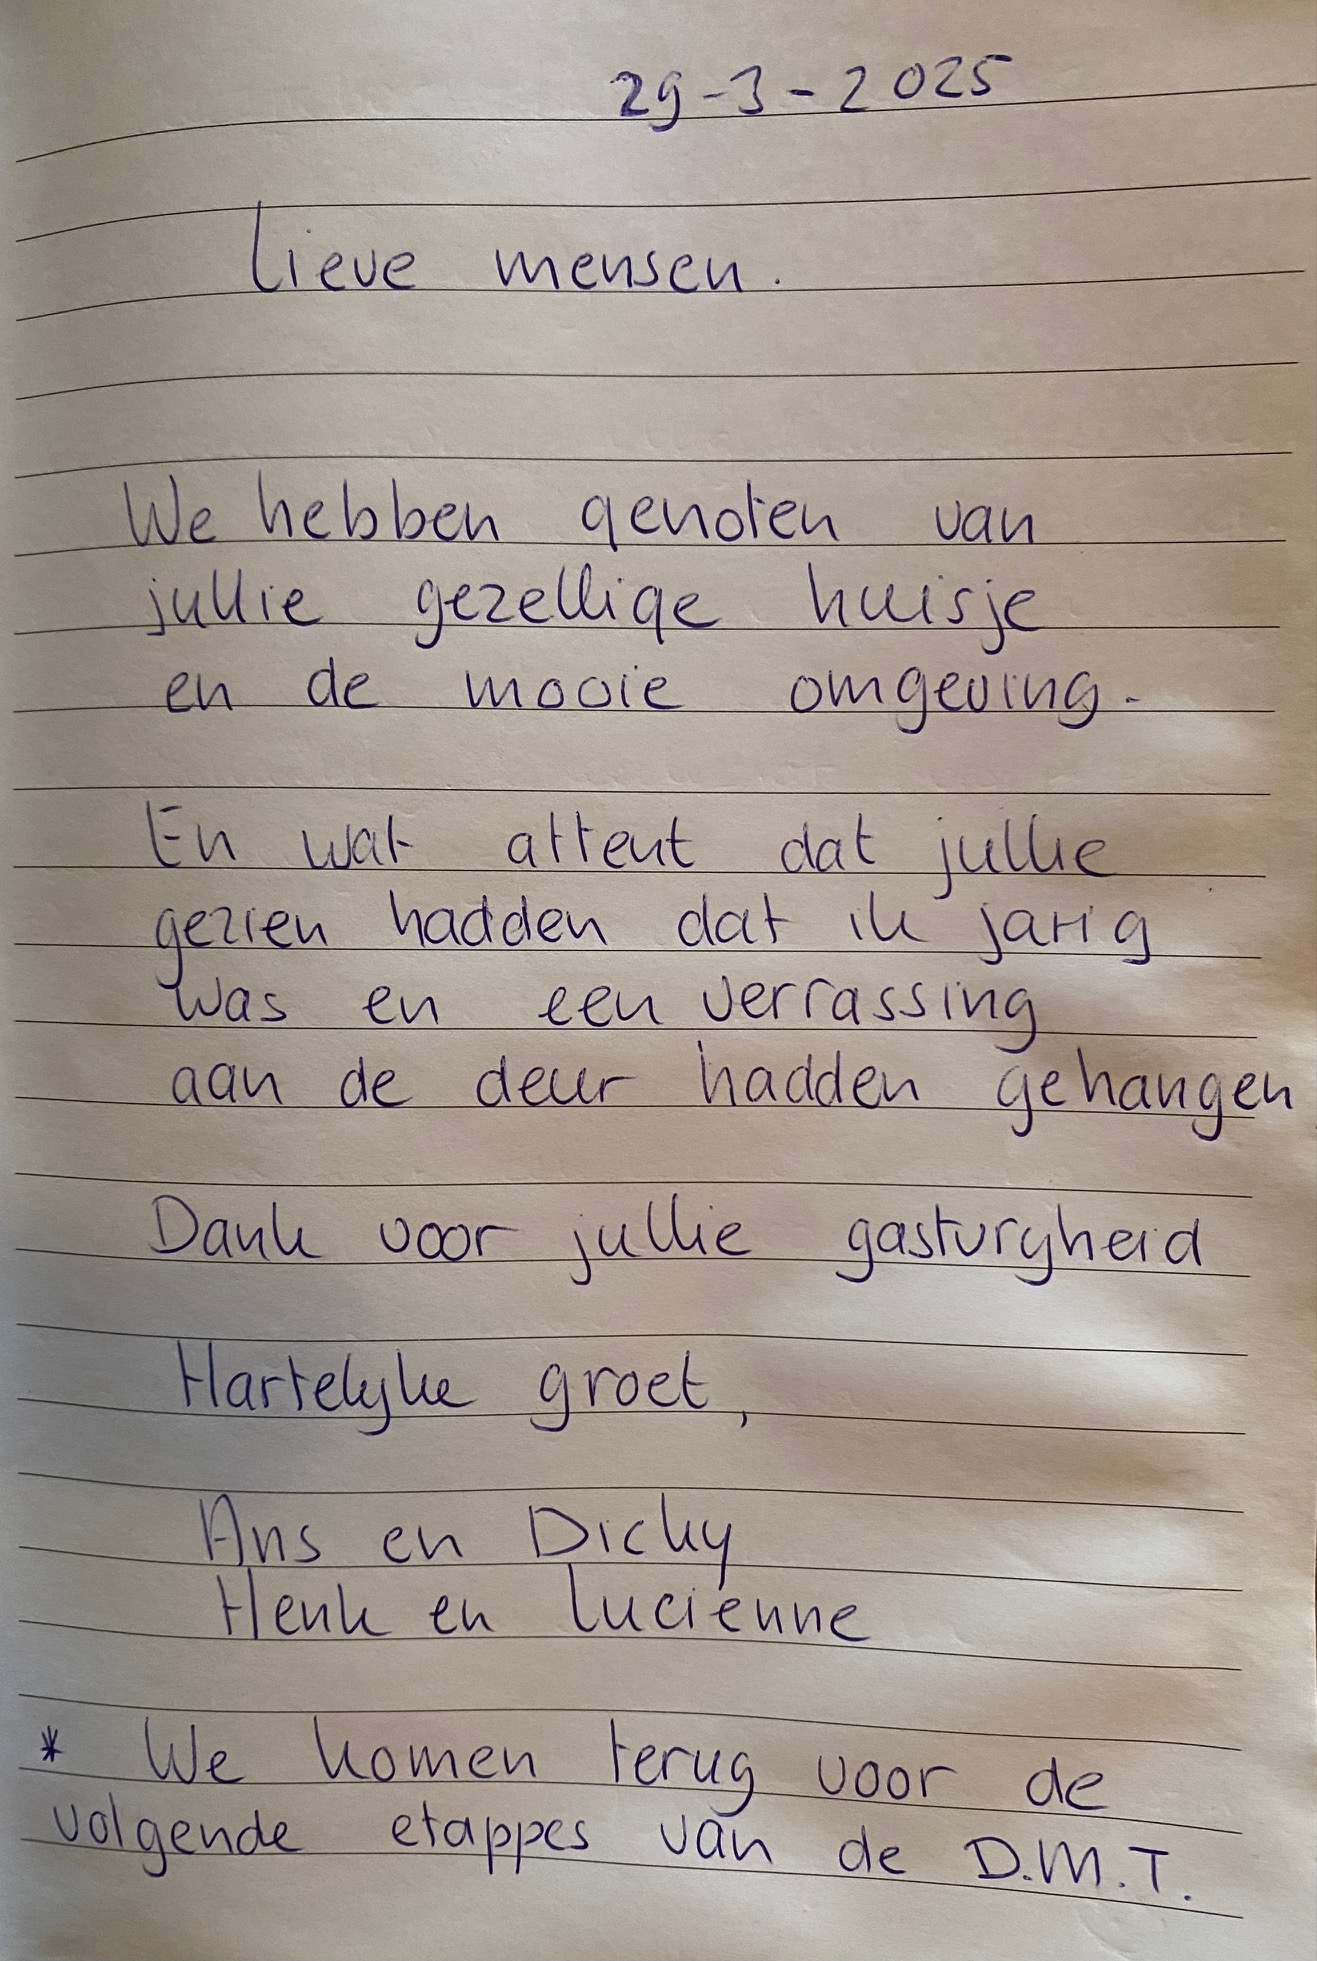 29-3-2025
Lieve mensen.
We hebben genoten van
jullie gezellige huisje
en de mooie omgeving.
En wat attent dat jullie
gezien hadden dat ik jarig
was en een verrassing
aan de deur hadden gehangen
Dank voor jullie gastvrijheid
Hartelijke groet,
Ans en Dicky
Henk en Lucienne
* We komen terug voor de
volgende etappes van de D.M.T.